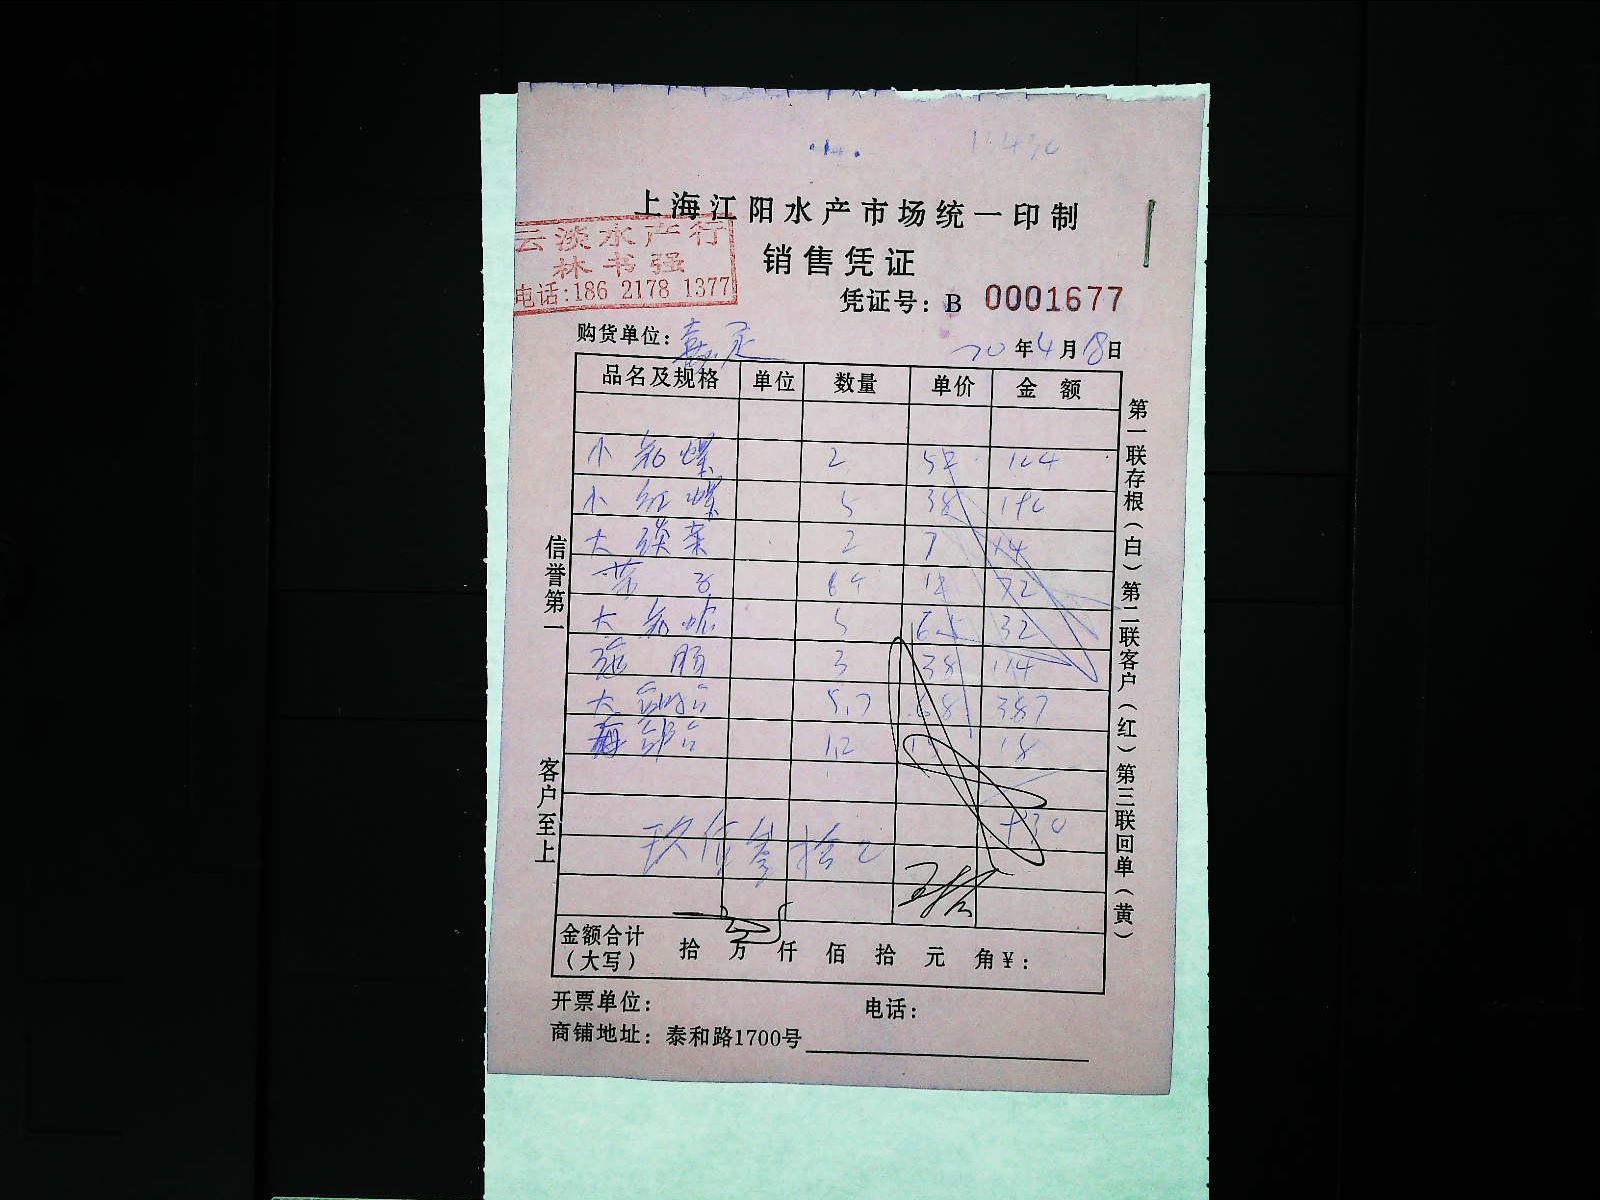 上海江阳水产市场统一印制
云淡水产行
林书强
电话:186 2178 1377
销售凭证
凭证号: B 0001677
购货单位: 嘉定
20年4月18日
品名及规格 单位 数量 单价 金 额
小 螺 2 52 104
小 红 螺 5 38 190
大 淡 菜 2 7 14
6个 12 72
大 5 32
3 38 114
大 5.7 68 387
1.2 18
930
玖佰叁拾元
金额合计(大写) 拾 万 仟 佰 拾 元 角 ¥:
开票单位: 电话:
商铺地址: 泰和路1700号
信誉第一 客户至上
第一联存根(白)第二联客户(红)第三联回单(黄)